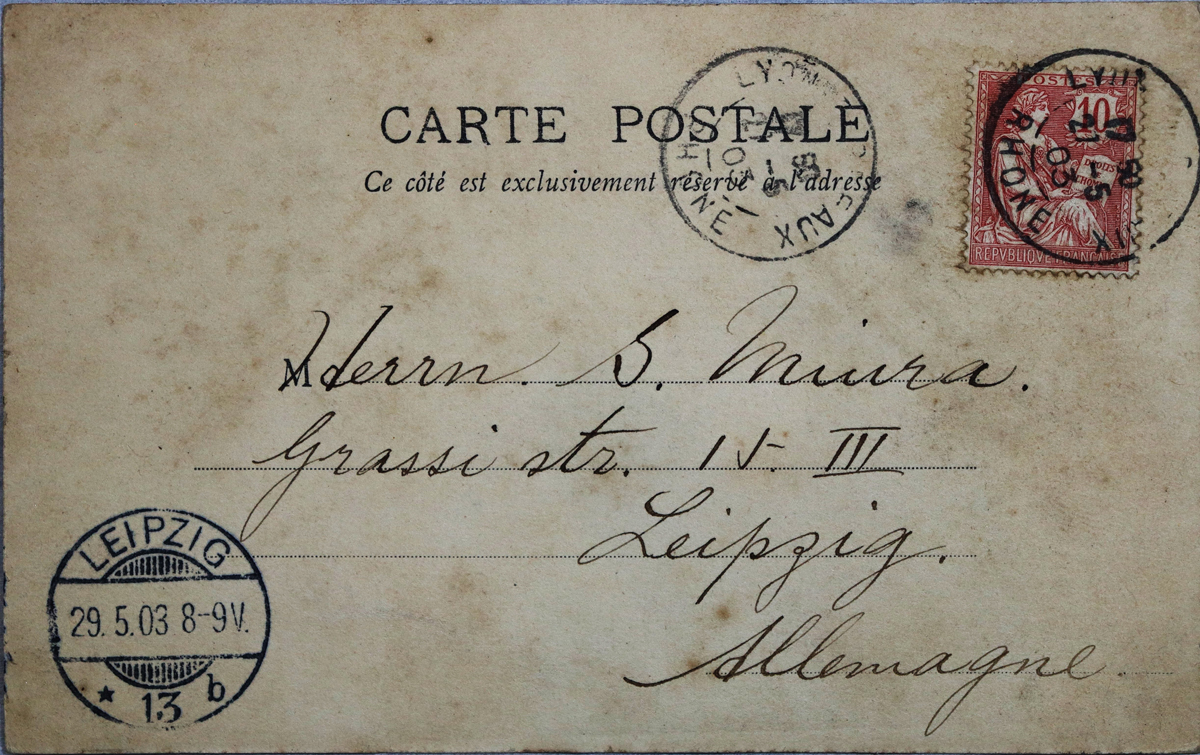 CARTE POSTALE
Ce côté est exclusivement réservé à l'adresse
LYON
RHONE
-5
03
POSTES
10
DROITS
REPVBLIQVE FRANÇAISE
LYON
RHONE
-5
03
M
Herrn. S. Miura.
Grassi str. 15. III
Leipzig.
Allemagne
LEIPZIG
29. 5. 03 8-9V.
* 13 b